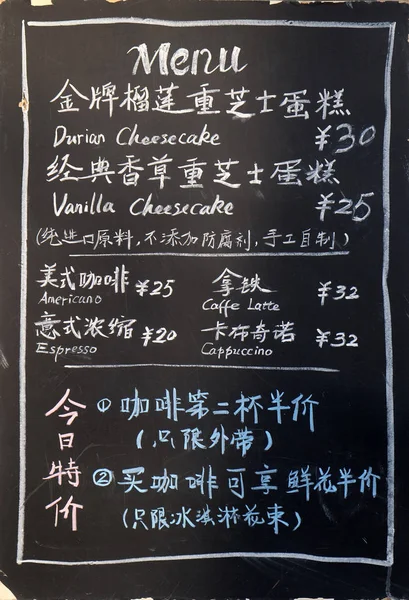 Menu
金牌榴莲重芝士蛋糕
Durian Cheesecake ¥30
经典香草重芝士蛋糕
Vanilla Cheesecake ¥25
(纯进口原料,不添加防腐剂,手工自制)
美式咖啡 ¥25
Americano
拿铁 ¥32
Caffe Latte
意式浓缩 ¥20
Espresso
卡布奇诺 ¥32
Cappuccino
今日特价
① 咖啡第二杯半价
(只限外带)
② 买咖啡可享鲜花半价
(只限冰淇淋花束)